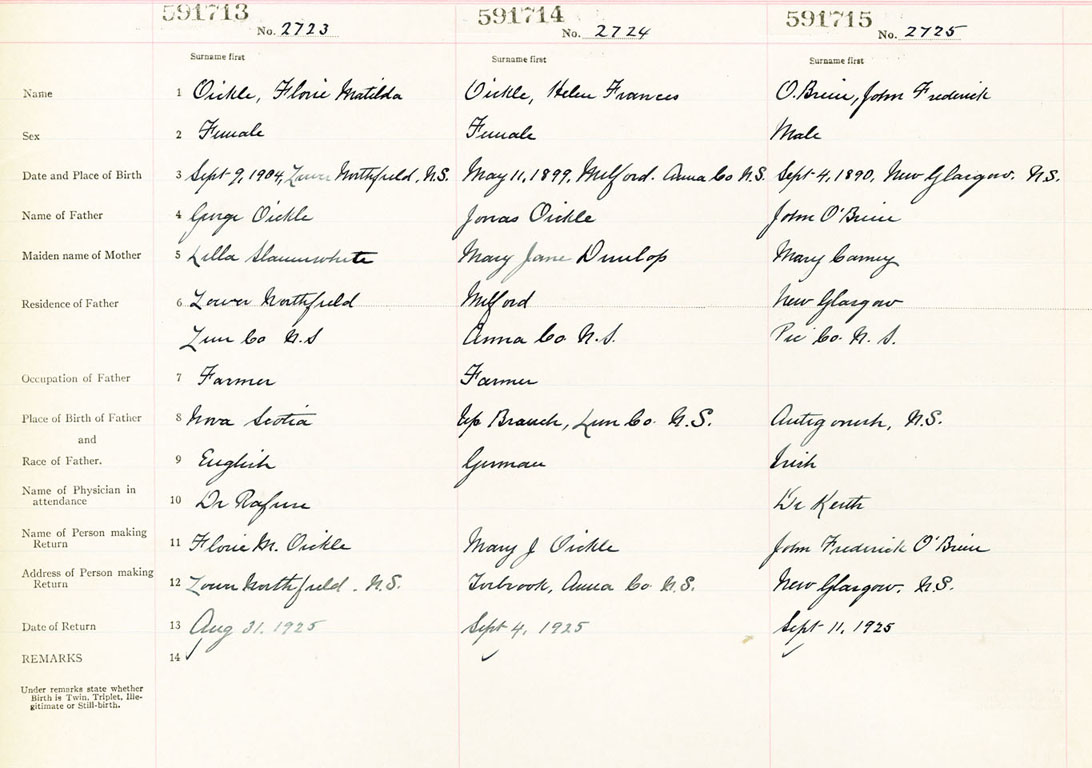 591713 591714 591715
No. 2723 No. 2724 No. 2725
Surname first Surname first Surname first
Name 1 Oickle, Florie Matilda Oickle, Helen Frances O.Brien, John Frederick
Sex 2 Female Female Male
Date and Place of Birth 3 Sept 9, 1904, Lower Northfield, N.S. May 11, 1899, Milford. Anna Co N.S. Sept 4, 1890, New Glasgow. N.S.
Name of Father 4 George Oickle Jonas Oickle John O'Brien
Maiden name of Mother 5 Lilla Slauenwhite Mary Jane Dunlop Mary Carney
Residence of Father 6 Lower Northfield Milford New Glasgow
Lun Co N.S Anna Co N.S. Pic Co. N.S.
Occupation of Father 7 Farmer Farmer
Place of Birth of Father 8 Nova Scotia Up Branch, Lun Co. N.S. Antigonish, N.S.
and
Race of Father. 9 English German Irish
Name of Physician in
attendance 10 Dr Rafuse Dr Keith
Name of Person making
Return 11 Florie M. Oickle Mary J Oickle John Frederick O'Brien
Address of Person making
Return 12 Lower Northfield. N.S. Torbrook, Anna Co N.S. New Glasgow. N.S.
Date of Return 13 Aug 31, 1925 Sept 4, 1925 Sept 11, 1925
REMARKS 14
Under remarks state whether
Birth is Twin, Triplet, Ille-
gitimate or Still-birth.